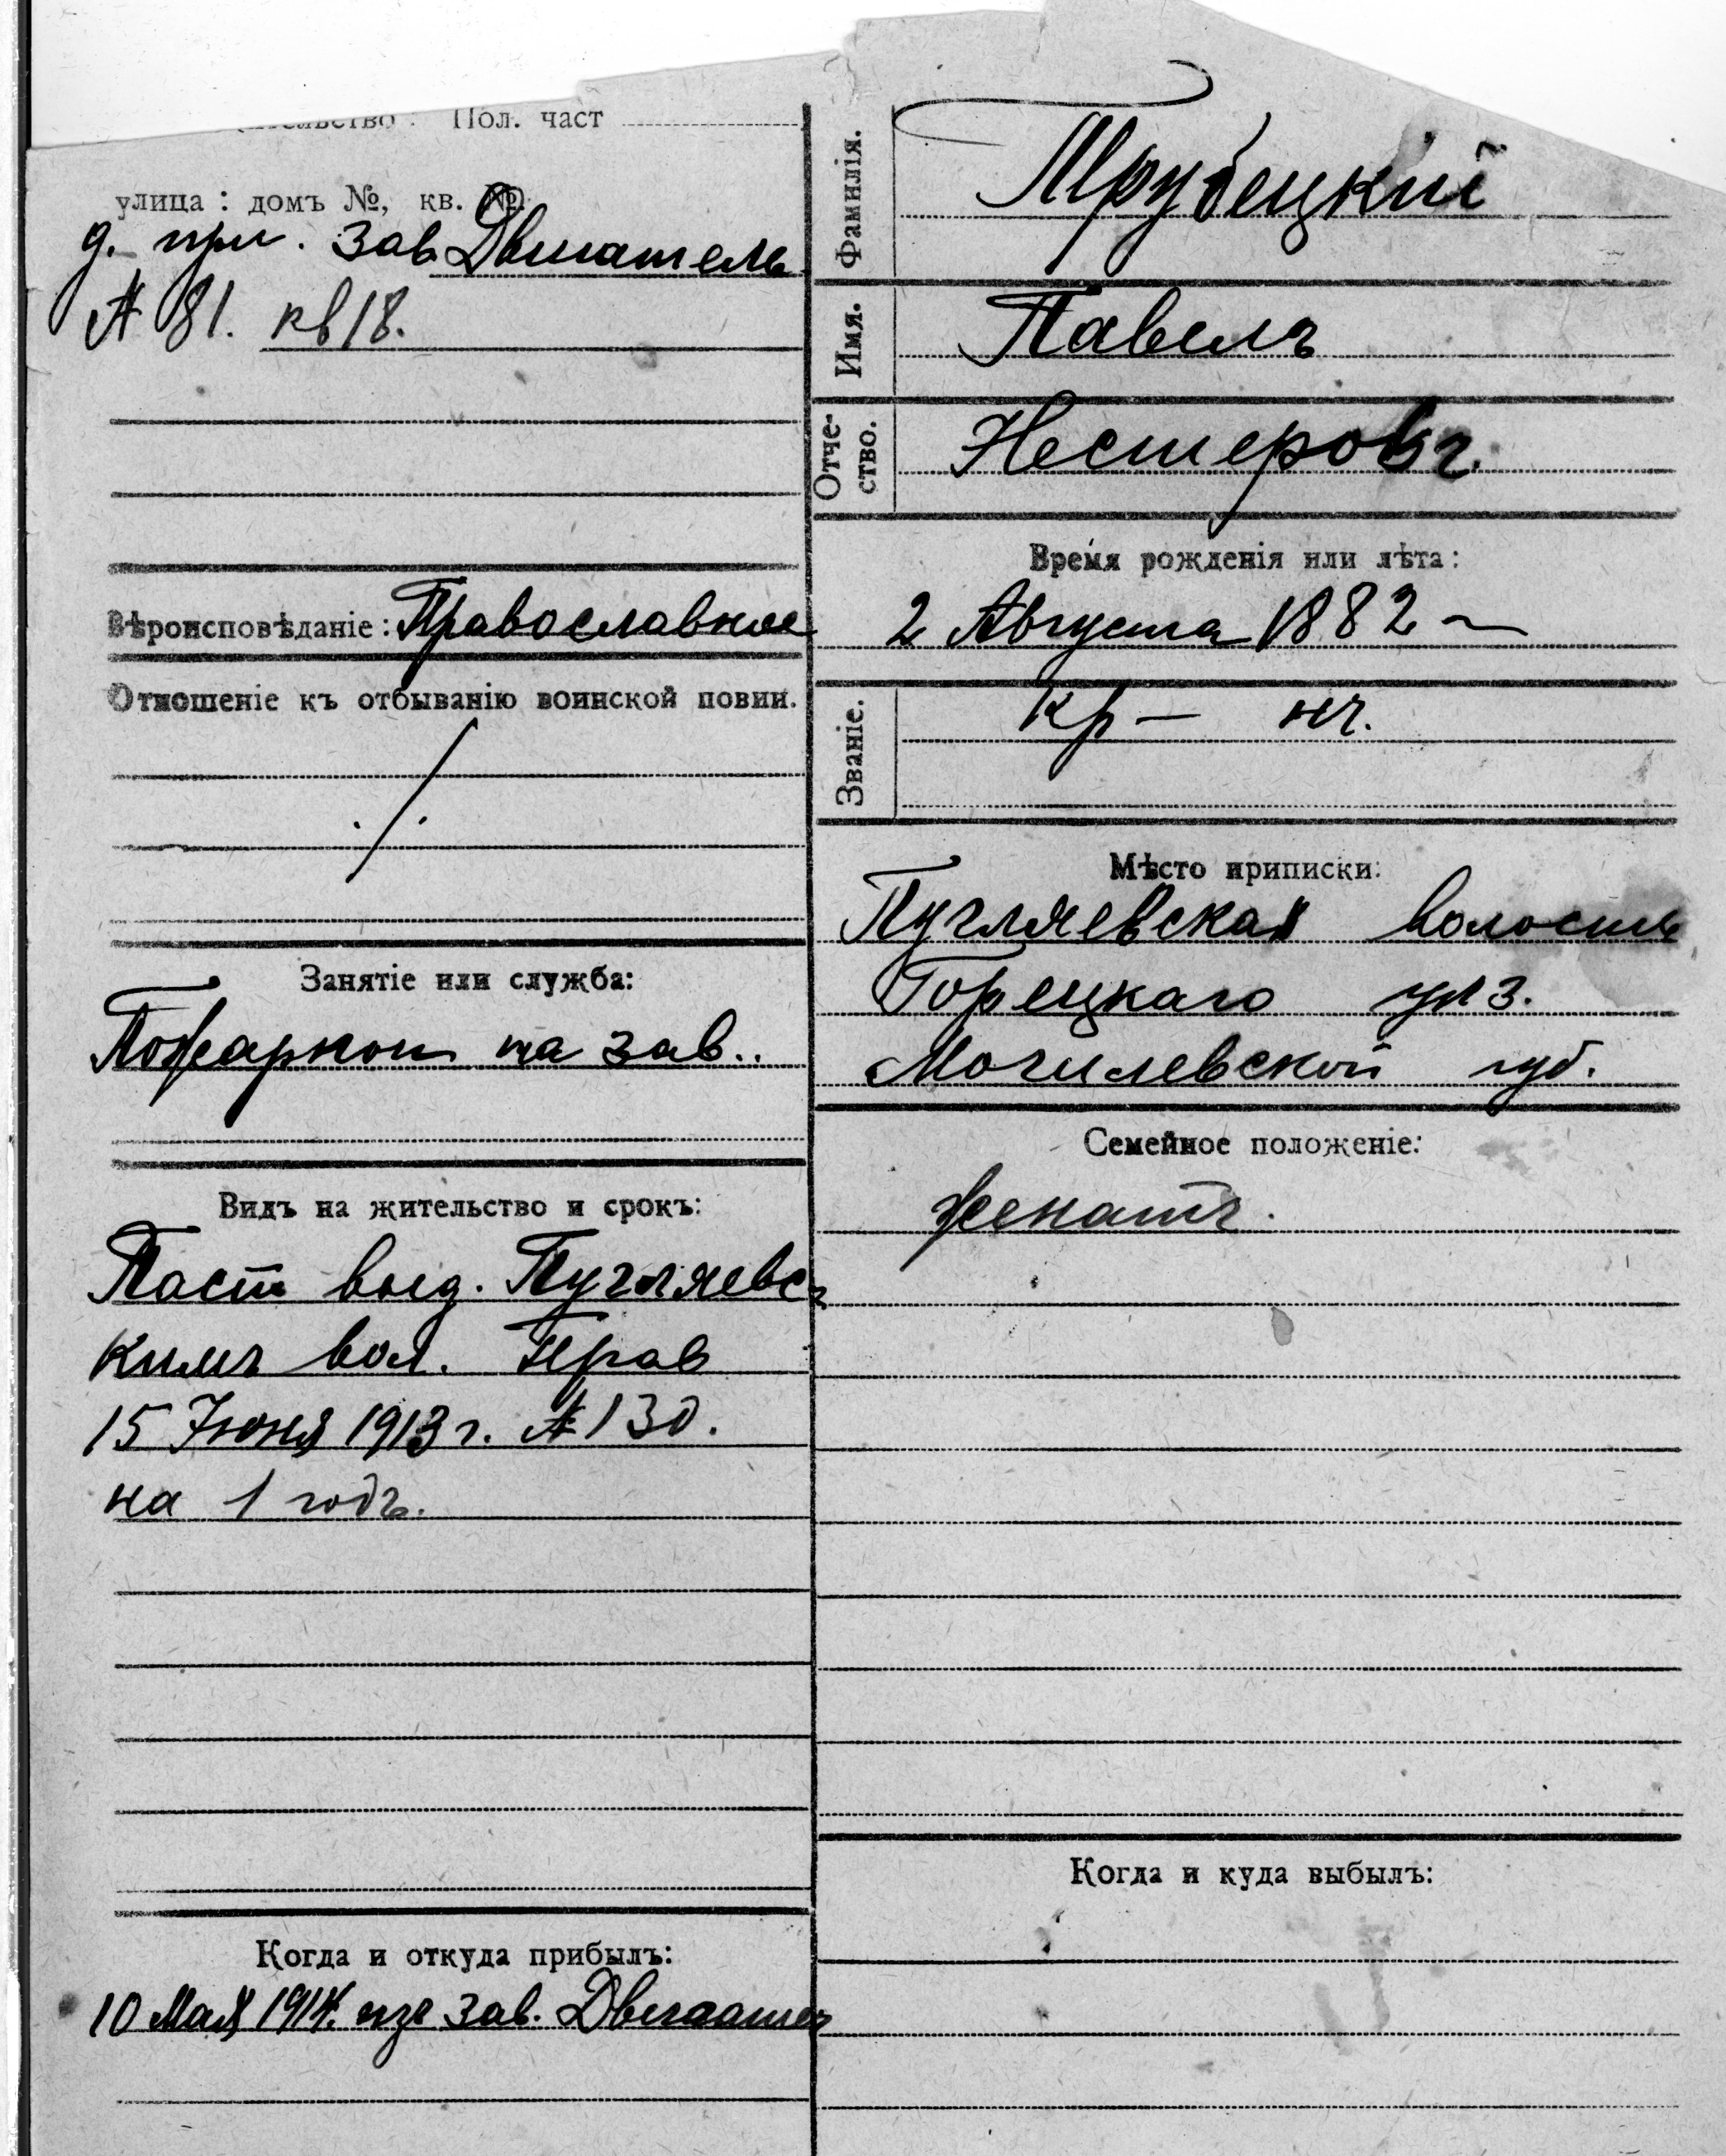 Пол. част
улица: домъ №, кв. №
д. при. зав Двигатель
№ 81. кв 18.
Вѣроисповѣданіе: Православное
Отношеніе къ отбыванію воинской повин.
./.
Занятіе или служба:
на зав..
Видъ на жительство и срокъ:
Пасп выд. Пугляевс
кимъ вол. Прав
15 Іюня 1913 г. № 130.
на 1 годъ.
Когда и откуда прибылъ:
10 Мая 1914. изъ зав. Двигател
Фамилія.
Трубецкій
Имя.
Павелъ
Отче-
ство.
Нестеровъ.
Время рожденія или лѣта:
2 Августа 1882
Званіе.
Кр— нъ.
Мѣсто приписки:
Пугляевская волость
Горецкаго уѣз.
Могилевской губ.
Семейное положеніе:
женатъ.
Когда и куда выбылъ: